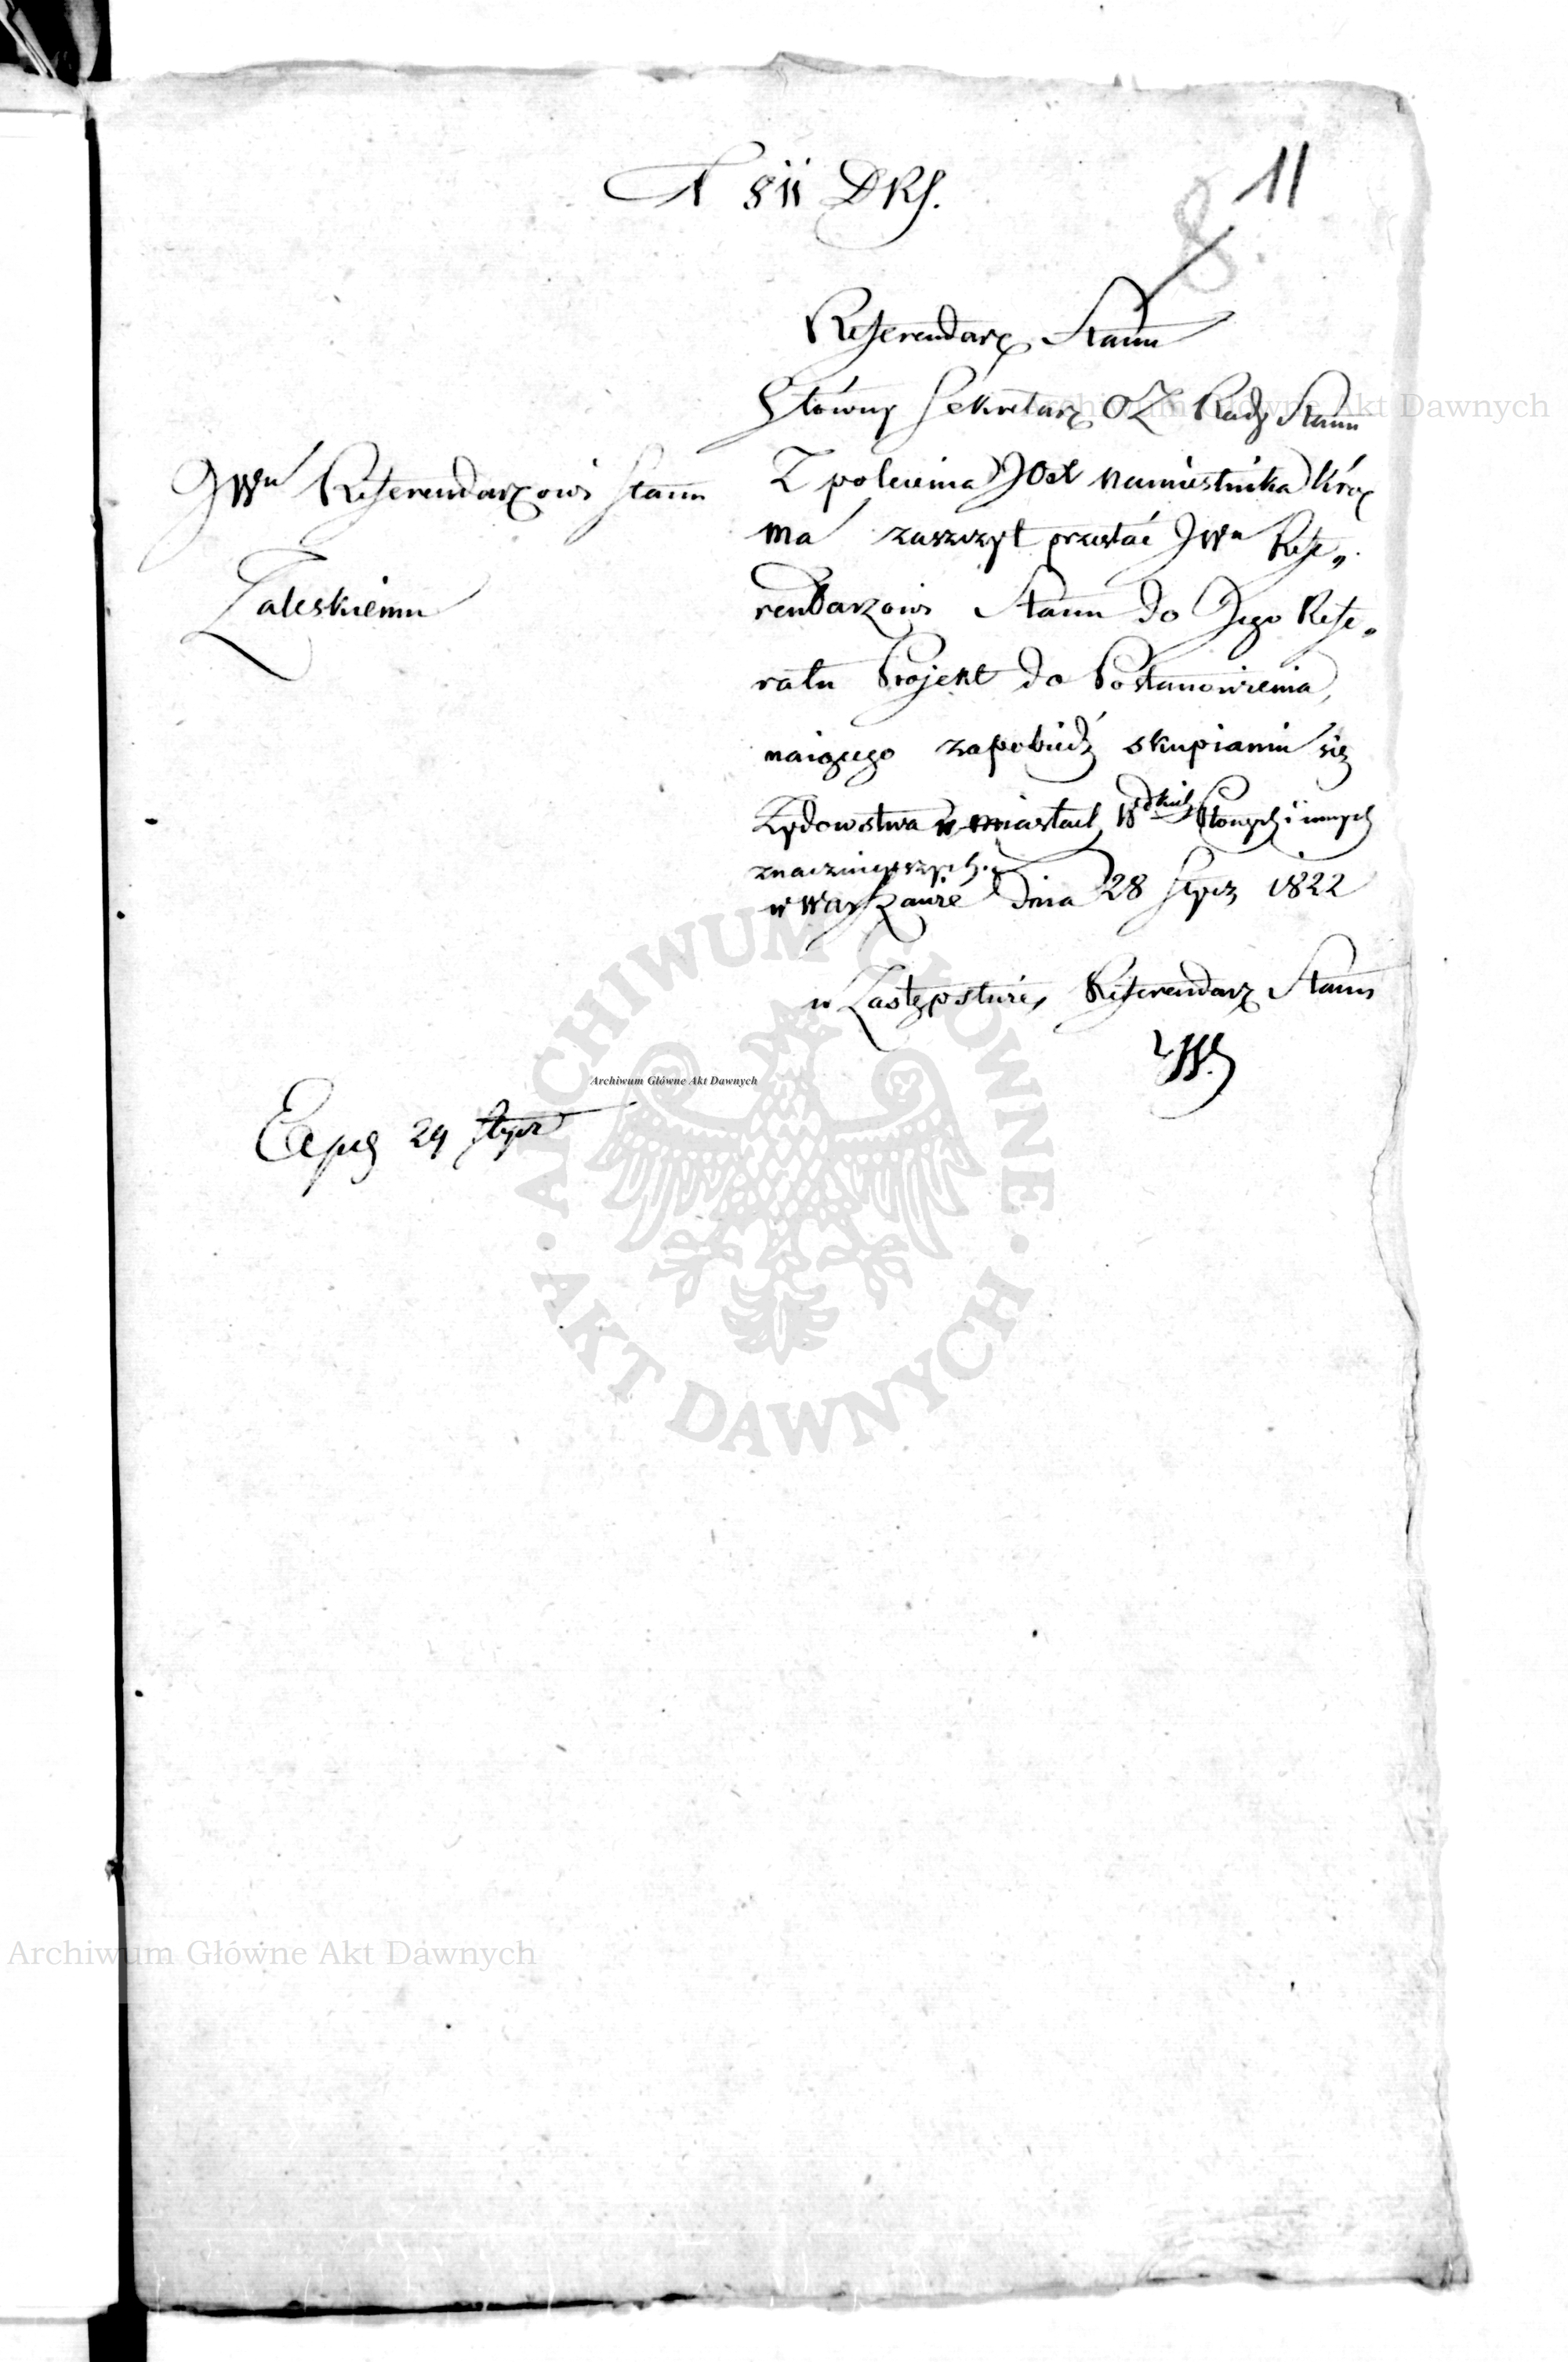 N 811 DRS.
11
8
Referendarz Stanu
Główny Sekretarz OZ Rady Stanu
JWu Referendarzowi Stanu
Zaleskiemu
Z polecenia JOX Namiestnika Król
ma zaszczyt przesłać JWu Refe„
rendarzowi Stanu do Jego Refe„
ratu Projekt do Postanowienia,
maiącego zapobiedź skupianiu się
Żydowstwa w miastach Wdzkich Stołecznych i innych
znacznieyszych.
w Warszawie dnia 28 Stycz 1822
w Zastępstwie, Referendarz Stanu
Exped 29 Stycz
Archiwum Główne Akt Dawnych
ARCHIWUM GŁÓWNE AKT DAWNYCH
Archiwum Główne Akt Dawnych
Archiwum Główne Akt Dawnych